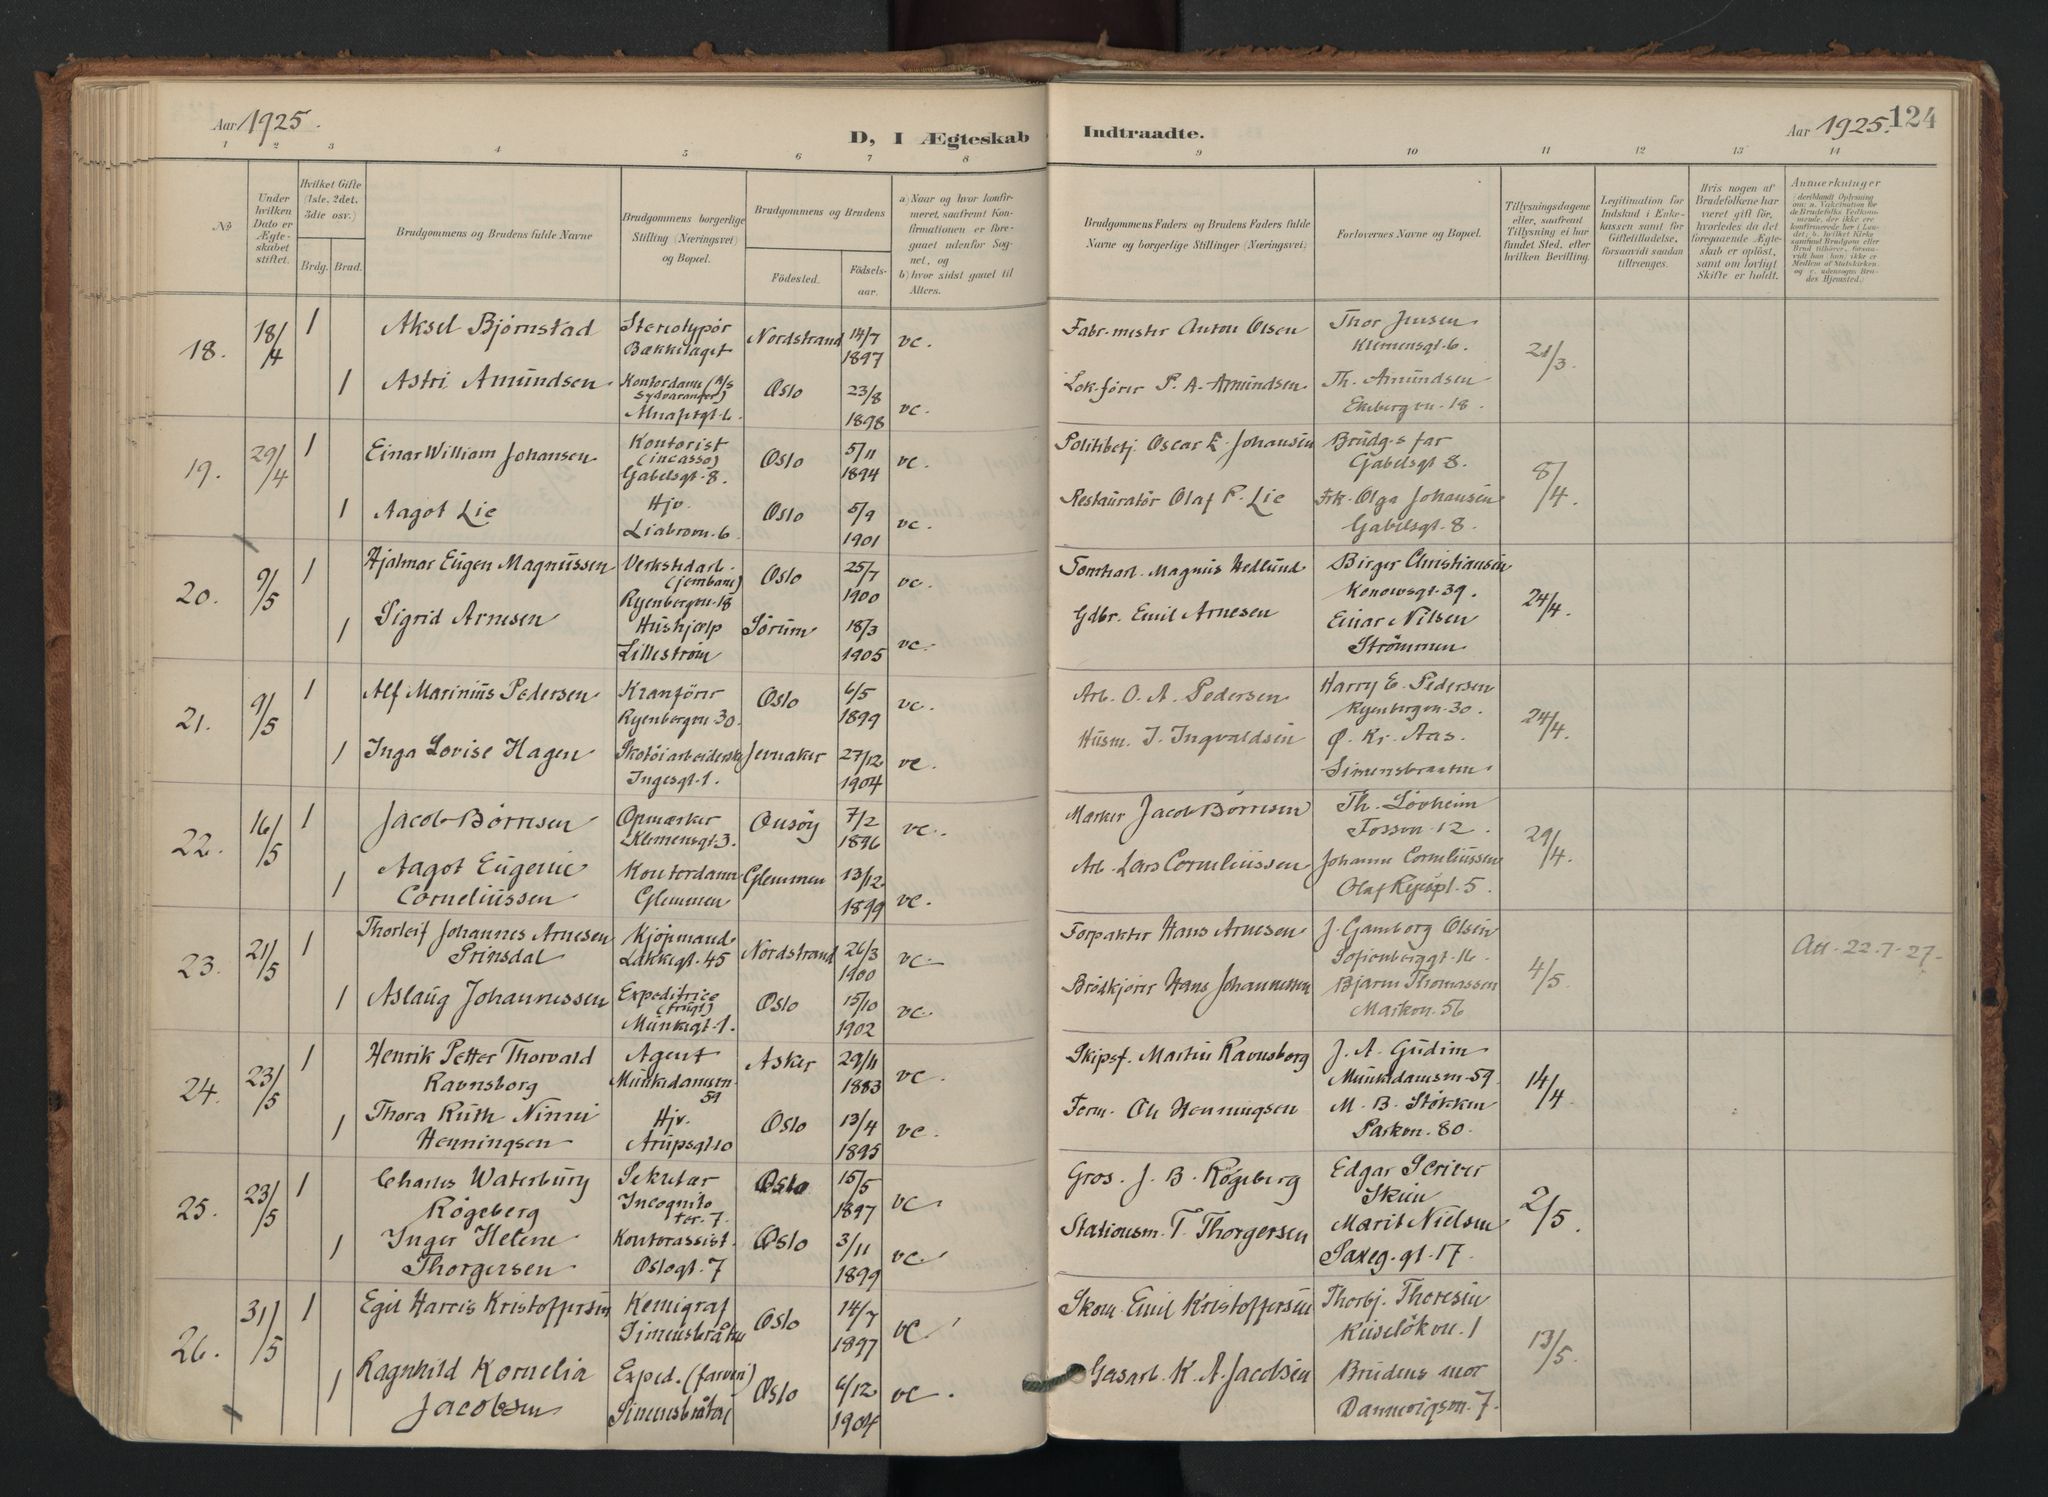 Aar 1925.
D, I Ægteskab Indtraadte.
Aar 1925. 124
1 2 3 4 5 6 7 8 9 10 11 12 13 14
№
Under hvilken Dato er Ægteskabet stiftet.
Hvilket Gifte (1ste. 2det. 3die osv.)
Brdg. Brud.
Brudgommens og Brudens fulde Navne
Brudgommens borgerlige Stilling (Næringsvei) og Bopæl.
Brudgommens og Brudens
Födested. Födselsaar.
a) Naar og hvor konfirmeret, saafremt Konfirmationen er foregaaet udenfor Sognet, og
b) hvor sidst gaaet til Alters.
Brudgommens Faders og Brudens Faders fulde Navne og borgerlige Stillinger (Næringsvei)
Forlovernes Navne og Bopæl.
Tillysningsdagene eller, saafremt Tillysning ei har fundet Sted, efter hvilken Bevilling.
Legitimation for Indskud i Enkekassen samt for Giftetilladelse, forsaavidt saadan tiltrænges.
Hvis nogen af Brudefolkene har været gift för, hvorledes da det foregaaende Ægteskab er oplöst, samt om lovligt Skifte er holdt.
Anmerkninger
18. 18/4 1 Aksel Bjørnstad Stereotypør Bækkelaget Nordstrand 14/7 1897 vc. Fabr.mester Anton Olsen Thor Jensen Klemensgt. 6. 21/3.
1 Astri Amundsen Kontordame (A/S Sydvaranger) Oslo 23/8 1898 vc. Lok.fører P. A. Amundsen Th. Amundsen Ekebergvn. 18.
19. 29/4 1 Einar William Johansen Kontorist (incasso) Gabelsgt. 8. Oslo 5/11 1894 vc. Politibetj. Oscar E. Johansen Brudg.s far Gabelsgt 8. 8/4.
1 Aagot Lie Hjv. Liabrovn. 6 Oslo 5/9 1901 vc. Restauratør Olaf P. Lie Frk. Olga Johansen Gabelsgt. 8.
20. 9/5 1 Hjalmar Eugen Magnussen Verkstedarb. (jernbane) Ryenbergvn. 18 Oslo 25/7 1900 vc. Tomtearb. Magnus Hedlund Birger Christiansen Konowsgt. 39. 24/4.
1 Sigrid Arnesen Hushjælp Lillestrøm Sørum 18/3 1905 vc. Gdbr. Emil Arnesen Einar Nilsen Strømmen.
21. 9/5 1 Alf Marinius Pedersen Kranfører Ryenbergvn. 30. Oslo 6/5 1899 vc. Arb. O. A. Pedersen Harry E. Pedersen Ryenbergvn. 30. 24/4.
1 Inga Lovise Hagen Skotøiarbeiderske Ingesgt. 1. Jevnaker 27/12 1904 vc. Husm. I. Ingvaldsen Ø. Kr. Aas. Simensbraaten.
22. 16/5 1 Jacob Børresen Opmærker Klemensgt 3. Onsøy 7/2 1896 vc. Marker Jacob Børresen Th. Løvheim Fossvn. 12. 29/4.
1 Aagot Eugenie Corneliussen Kontordame Glemmen Glemmen 13/12 1899 vc. Arb. Lars Corneliussen Johanne Corneliussen Olaf Ryespl. 5.
23. 21/5 1 Thorleif Johannes Arnesen Prinsdal Kjøpmand Lakkegt. 45 Nordstrand 26/3 1900 vc. Forpakter Hans Arnesen J. Gamborg Olsen Sofienberggt. 16. 4/5. Att. 22-7-27.
1 Aslaug Johannessen Expeditrice (frugt) Munkegt. 1. Oslo 15/10 1902 vc. Brødkjører Hans Johannessen Bjarne Thomassen Markvn. 56
24. 23/5 1 Henrik Petter Thorvald Ravnsborg Agent Munkedamsvn. 59 Asker 29/11 1883 vc. Skipsf. Martin Ravnsborg J. A. Gudim Munkedamsvn. 59. 14/4
1 Thora Ruth Ninni Henningsen Hjv. Arupsgt. 10 Oslo 13/4 1895 vc. Form. Ole Henningsen M. B. Støkken Parkvn. 80.
25. 23/5 1 Charles Waterbury Røgeberg Sekretær Incognito ter. 7. Oslo 15/5 1897 vc. Gros. J. B. Røgeberg Edgar Scriver Skien 2/5.
1 Inger Helene Thorgersen Kontorassist. Oslogt. 7 Oslo 3/11 1899 vc. Stationsm. T. Thorgersen Marit Nielsen Saxeg. gt. 17.
26. 31/5 1 Egil Harris Kristoffersen Kemigraf Simensbråten Oslo 14/7 1897 vc. Skom. Emil Kristoffersen Thorbj. Thoresen Ruseløkvn. 1 13/5.
1 Ragnhild Kornelia Jacobsen Exped. (farveri) Simensbråten Oslo 6/12 1904 vc. Gasarb. K. A. Jacobsen Brudens mor Dannevigsvn. 7.